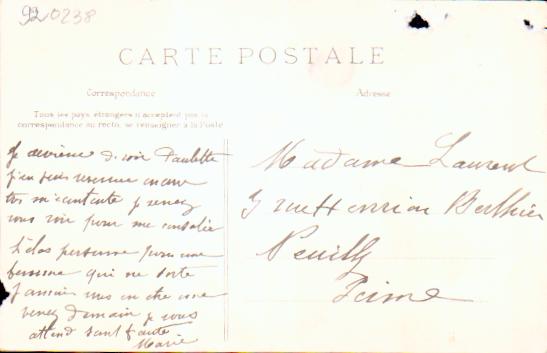 920238
CARTE POSTALE
Correspondance
Adresse
Tous les pays étrangers n'acceptent pas la
correspondance au recto, se renseigner à la Poste
Je reviens de voir Paulette
j'en suis revenue encore
très mécontente je
vous voir pour me consoler
Hélas personne pour une
femme qui ne sorte
jamais
venez demain je vous
attend sans faute
Marie
Madame Laurent
rue Henrion Berthier
Neuilly
Seine